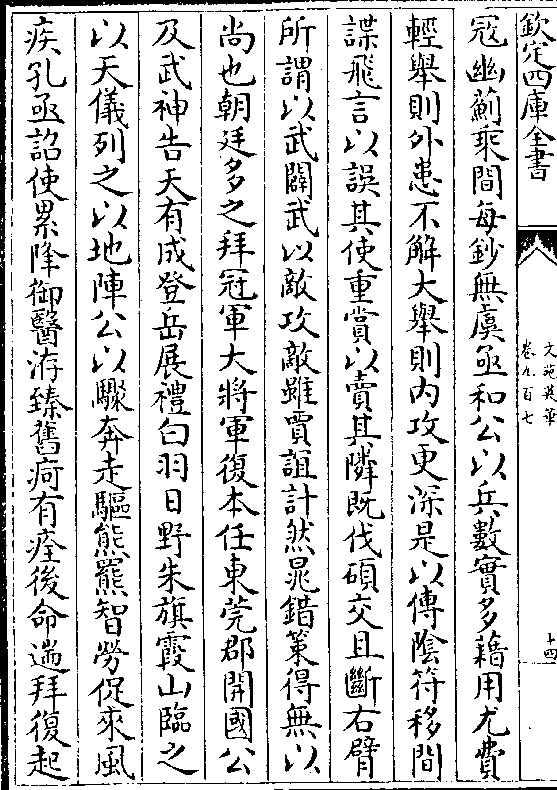 欽定四庫全書
文苑英華
卷九百七
十四
冦幽薊乘間每鈔無虞亟和公以兵數實多藉用尤費
輕舉則外患不解大舉則内攻更深是以傳陰符移間
諜飛言以誤其使重賞以賣其隣既伐碩交且斷右臂
所謂以武闢武以敵攻敵雖賈誼計然鼂錯策得無以
尚也朝廷多之拜冠軍大將軍復本任東莞郡開國公
及武神告天有成登岳展禮白羽日野朱旗霞山臨之
以天儀列之以地陣公以驟奔走驅熊羆智勞促來風
疾孔亟詔使累降御醫洊臻舊疴有痊後命遄拜復起